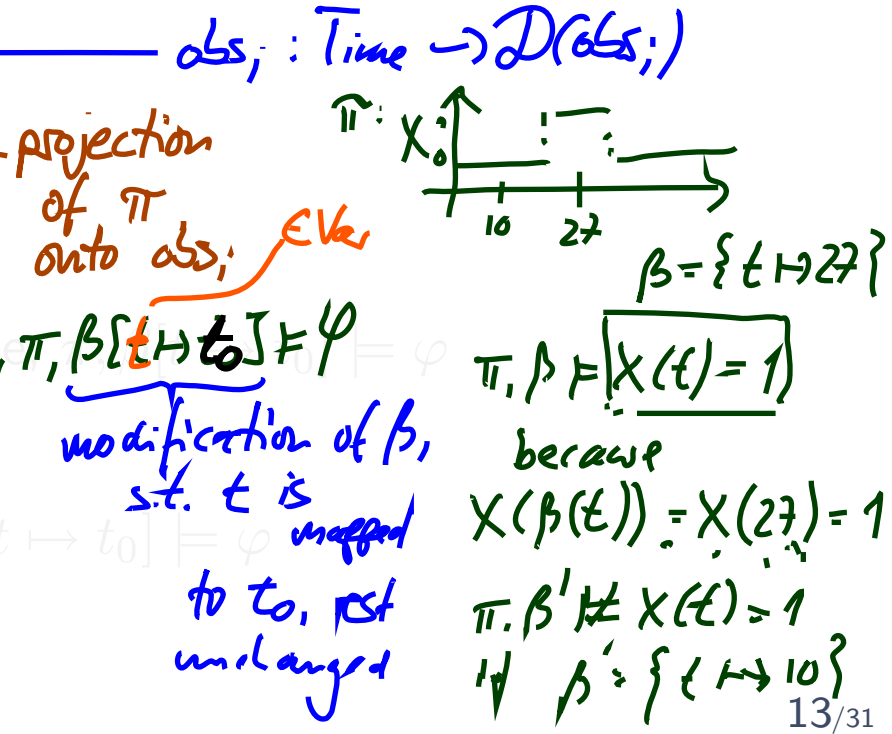 obsⱼ : Time → D(obsⱼ)
projection
of π
onto obsⱼ
π: X:
0
10 27
∈ Var
β = {t ↦ 27}
π, β[t ↦ t₀] ⊨ φ
modification of β,
s.t. t is
mapped
to t₀, rest
unchanged
π, β ⊨ X(t) = 1
because
X(β(t)) = X(27) = 1
π, β' ⊭ X(t) = 1
β' : {t ↦ 10}
t ↦ t₀] ⊨ φ
13/31